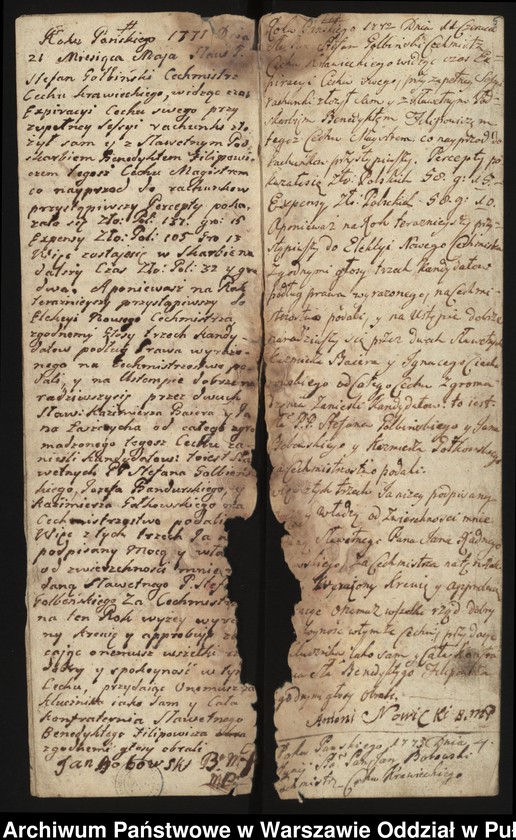 Roku Pańskiego 1771 Dnia
21 Miesiąca Maja Sław: P.
Stefan Gołbiński Cechmistrz
Cechu Krawieckiego, widząc czas
Expiracyi Cechu swego przy
zupełney Sessyi rachunki zło
żył sam y z Sławetnym Pod
skarbim Benedyktem Filipowi
czem tegoż Cechu Magistrem
co nayprzod do rachunkow
przystąpiwszy Percepty poka
zało się Zło: Pol: 137. gro: 15
Expensy Zło: Pol: 105 Gro 13
Więc zostaiąc w Skarbie na
dalszy Czas Zło: Pol: 32 y gro
dwa. A ponieważ na Rok
teraznieyszy przystąpiwszy do
Elekcyi Nowego Cechmistrza
zgodnemi głosy trzech Kandy
datow podług Prawa wyrażo
nego na Cechmistrzostwo po
dali, y na Ustempie dobrze na
radziwszy się przez dwuch
Sław: Kazimierza Baiera y Ja
na od całego zgro
madzonego tegoż Cechu za
nieśli Kandydatow: to iest Sła
wetnych PP Stefana Gołbiń
skiego, Jozefa Bandurskiego, y
Kazimierza Połkowskiego na
Cechmistrzostwo podali
Więc z tych trzech Ja n
podpisany Mocą y wła
od zwierzchności mnie
daną Sławetnego P. Stef
Gołbińskiego Za Cechmist
na ten Rok wyżey wyra
ny kreuię y approbuię z
caiąc onemusz wszelki rz
dobry y spokoyność w tym
Cechu, przydaiąc Onemusz za
Klucznika iako Sam y Cała
Konfraternia Sławetnego
Benedyktego Filipowicza
zgodnemi głosy obrali
Jan Bobowski B: M: P
Roku Pańskiego 1772 Dnia 14 Czerwca
Stefan Gołbiński Cechmistrz
Cechu Krawieckiego widząc czas Ex
piracyi Cechu swego, przy zupełney Sessyi
rachunki złożył Sam y z Sławetnym Pod
skarbim Benedyktem Filipowiczem
tegoż Cechu Magistrem. co nayprzod do
rachunkow przystąpiwszy. Percepty po
kazało się Zło: Polskich 58: g: 15.
Expensy Zło: Polskich 58: g: 10.
A ponieważ na Rok teraznieyszy przy
stąpiwszy do Elekcyi Nowego Cechmistrza
zgodnymi głosy trzech Kandydatow
podług prawa wyrażonego, na Cechmi
strzostwo podali, y na Ustępie dobrze
naradziwszy się przez dwuch Sławetnych
Kazimierza Baiera y Ignacego
od całego Cechu Zgroma
Zanieśli Kandydatow: to iest
PP. Stefana Gołbińskiego y Jana
Bobowskiego y Kazmierza Połkowskiego
Cechmistrzostwo podali:
z tych trzech Ja niżey podpisany
y Władzą od Zwierzchności mnie
Sławetnego Pana Jana
Za Cechmistrza na ten Rok
Wyrażony Kreuię y approbu
onemuż wszelki rząd dobry
w tymże Cechu, przydaiąc
Klucznika iako sam y Cała Konfra
Benedykta Filipowicza
godnymi głosy obrali.
Antoni Nowicki B. mP
Roku Pańskiego 1773 Dnia 4.
Bobowski
Cechu Krawieckiego
Archiwum Państwowe w Warszawie Oddział w Puł